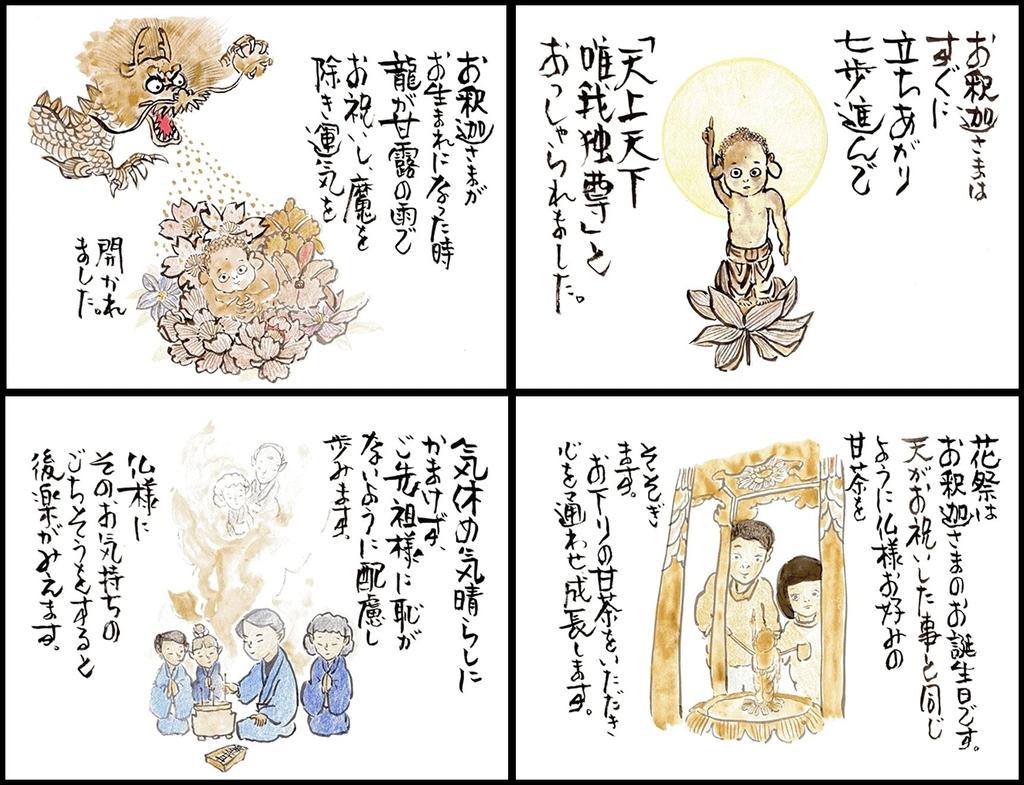 お釈迦さまは
すぐに
立ちあがり
七歩進んで
「天上天下
唯我独尊」と
おっしゃられました。
お釈迦さまが
お生まれになった時
龍が甘露の雨で
お祝いし魔を
除き運気を
開かれ
ました。
花祭は
お釈迦さまのお誕生日です。
天がお祝いした事と同じ
ように仏様お好みの
甘茶を
そそぎ
ます。
お下りの甘茶をいただき
心を通わせ成長します。
気休め気晴らしに
かまけず、
ご先祖様に恥が
ないように配慮し
歩みます。
仏様に
そのお気持ちの
ごちそうをすると
後楽がみえます。